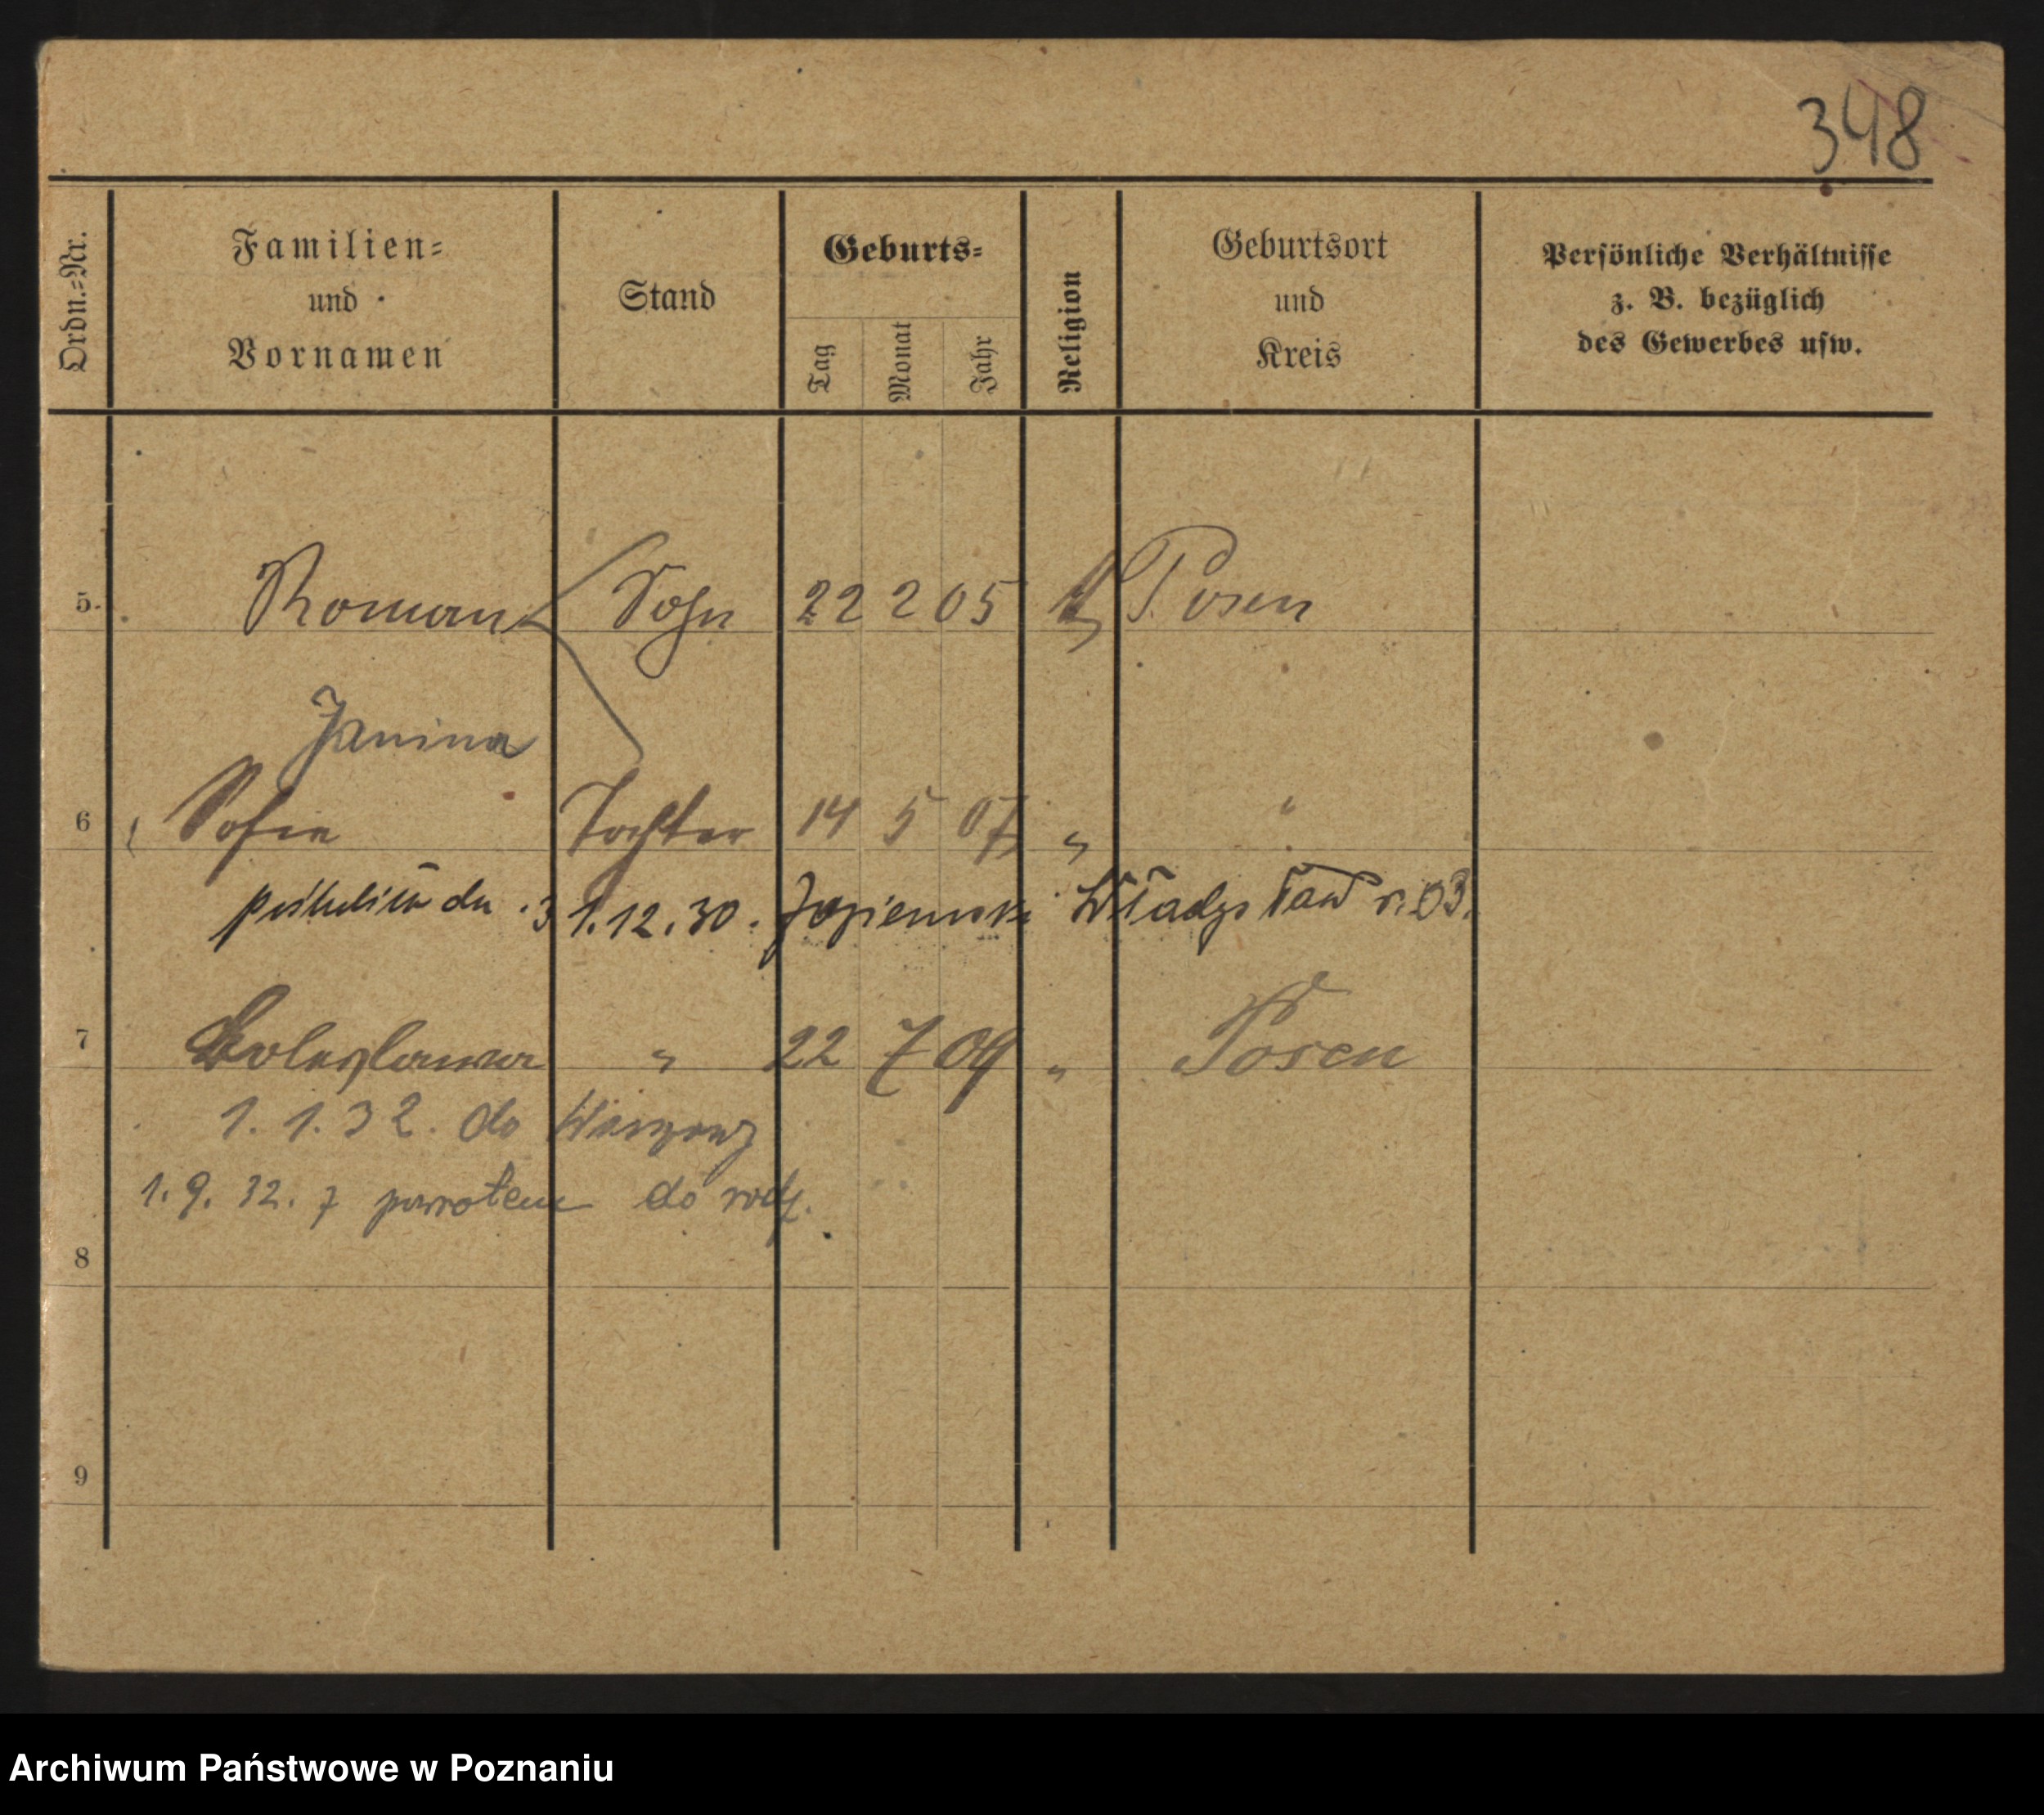 348
Ordn.=Nr.
Familien=
und
Vornamen
Stand
Geburts=
Tag
Monat
Jahr
Religion
Geburtsort
und
Kreis
Persönliche Verhältnisse
z. B. bezüglich
des Gewerbes usw.
5. Roman Sohn 22 2 05 Posen
Janina
6 Sofie Tochter 14 5 07 " "
poślubiła dn. 31.12.30. Władysław r. 03.
7 Boleslawa " 22 7 09 " Posen
1. 1. 32. do Warszawy
1. 9. 32. z powrotem do rodz.
8
9
Archiwum Państwowe w Poznaniu